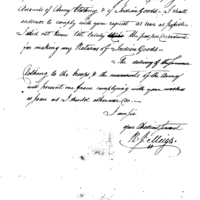 Accounts of Army Clothing & of Indian Goods. I shall
endeavour to comply with your request as soon as possible.
I did not know till lately the proper
for making any Returns of Indian Goods.
The delivery of the Summer
Clothing to the troops & the movements of the Army
will prevent me from complying with your wishes
as soon as I should otherwise do.
I am Sir
your Obedient Servant
R. J. Meigs